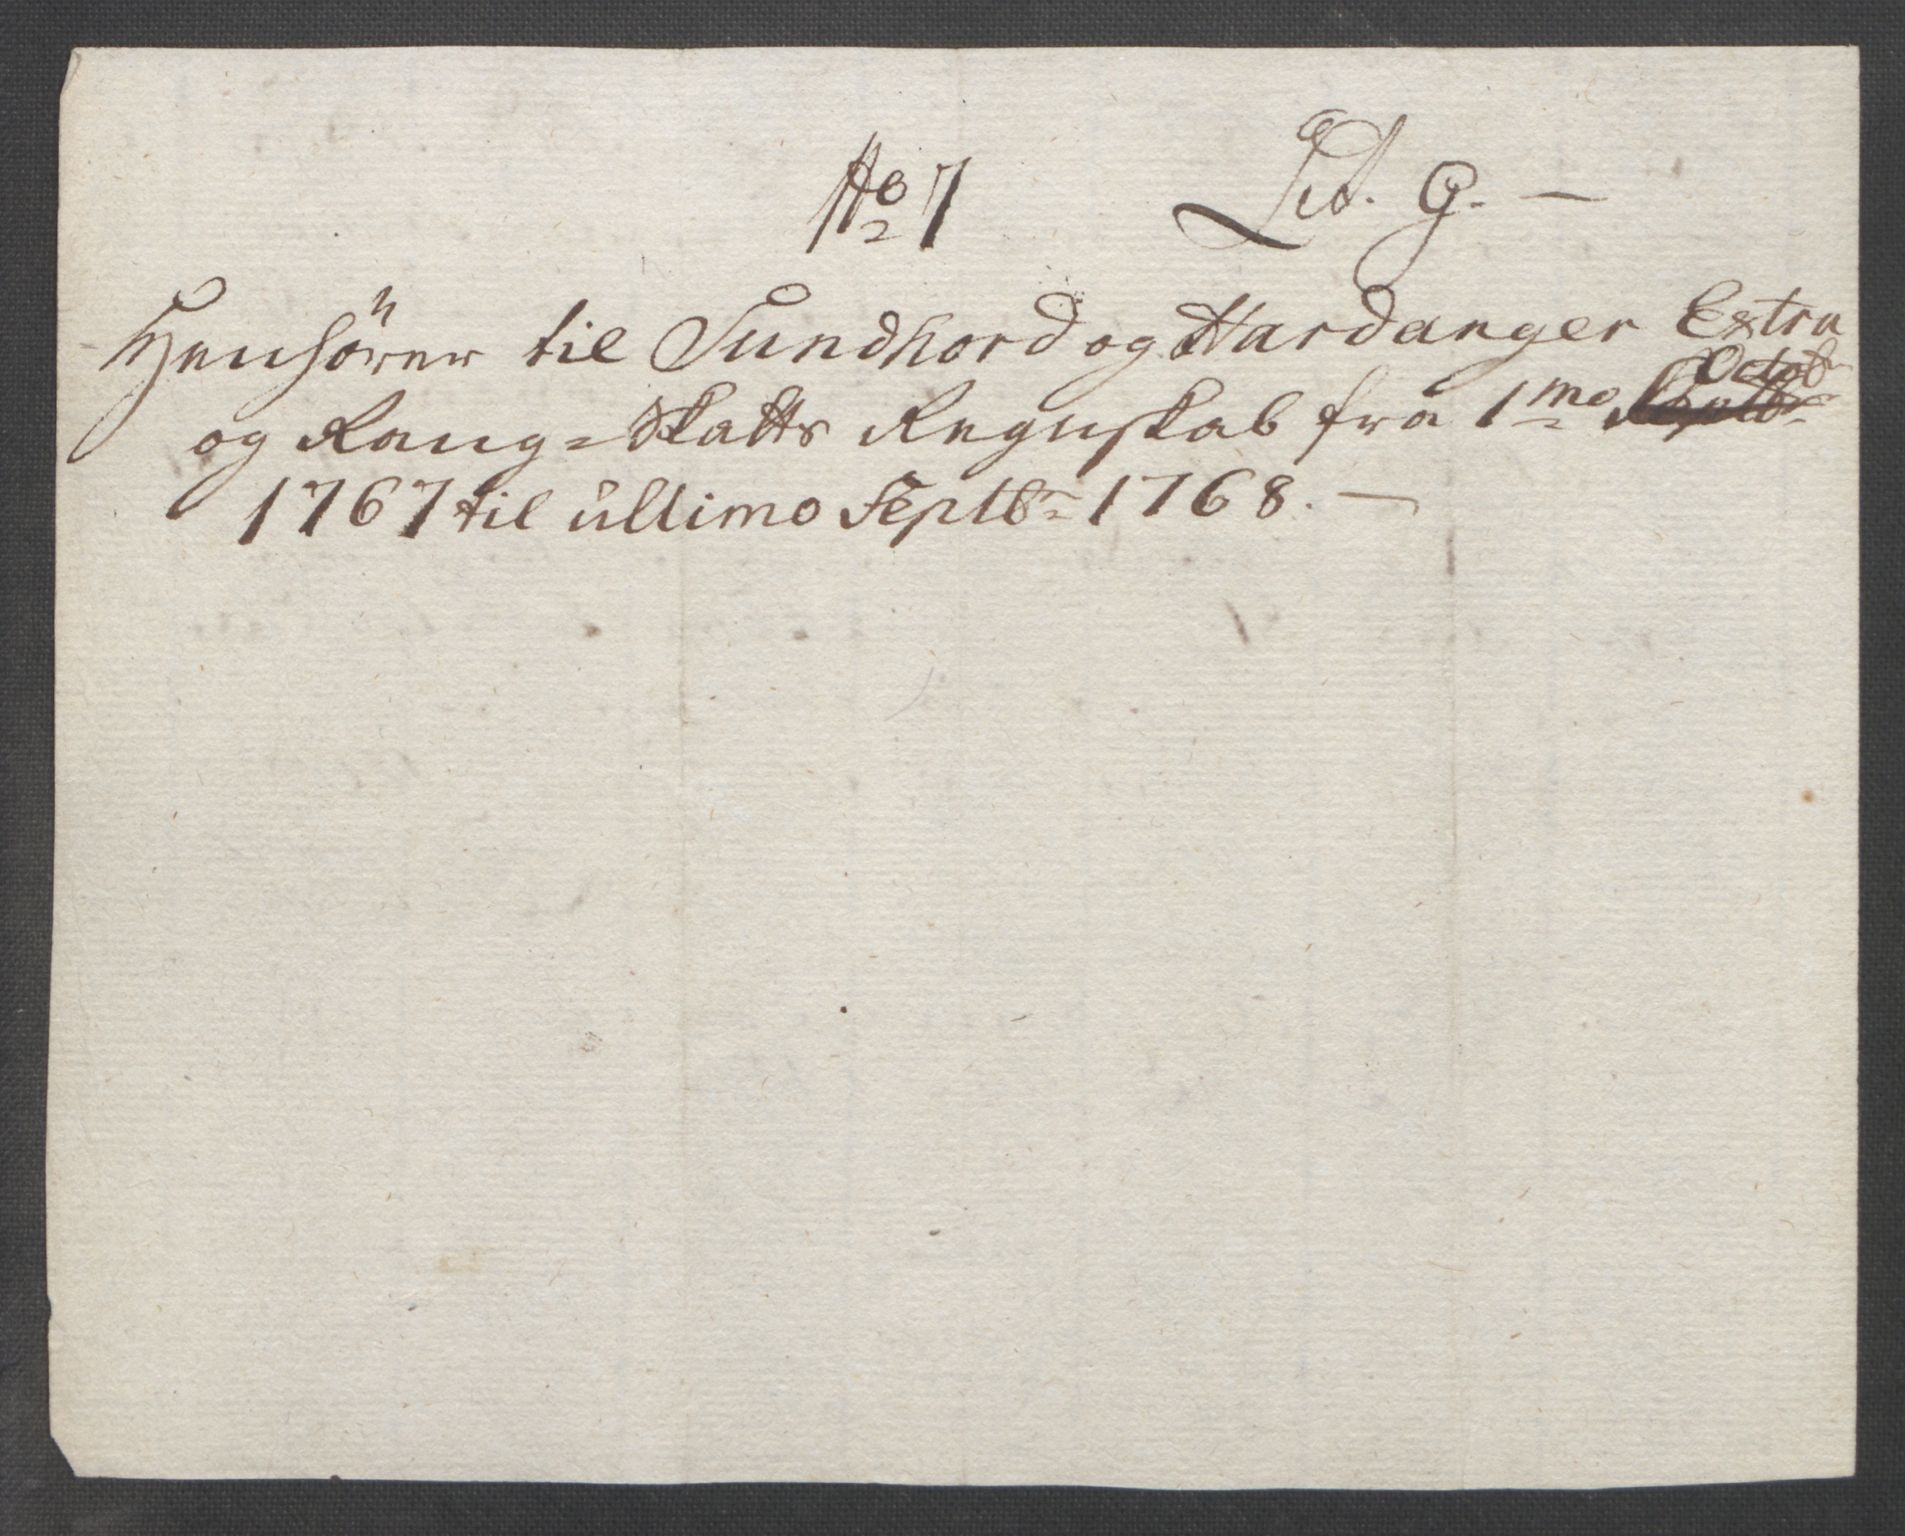 No 7 Lit. G. —
Henhörer til Sundhord og Hardanger Extra
og Rang=Skatts Regnskab fra 1mo Octobr
1767 til ultimo Septbr 1768. —